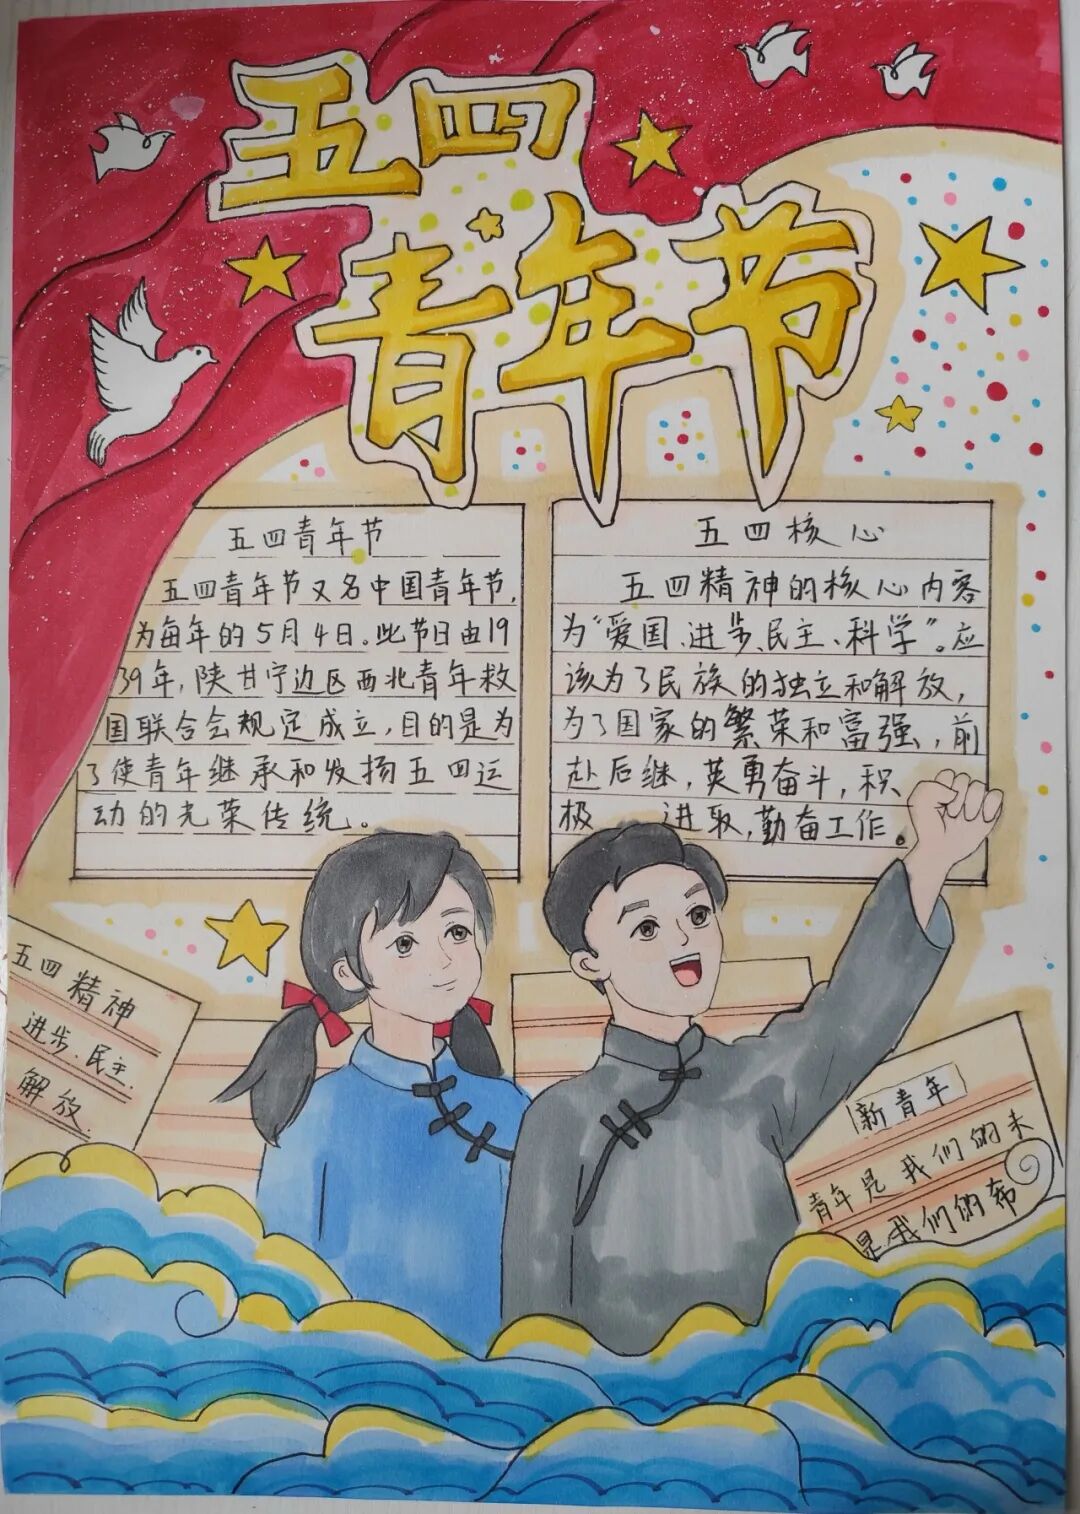 五四
青年节
五四青年节
五四青年节又名中国青年节,
为每年的5月4日。此节日由19
39年,陕甘宁边区西北青年救
国联合会规定成立,目的是为
了使青年继承和发扬五四运
动的光荣传统。
五四核心
五四精神的核心内容
为“爱国、进步、民主、科学”。应
该为了民族的独立和解放,
为了国家的繁荣和富强,前
赴后继,英勇奋斗,积
极 进取,勤奋工作。
五四精神
进步、民主、
解放.
新青年
青年是我们的未
是我们的希